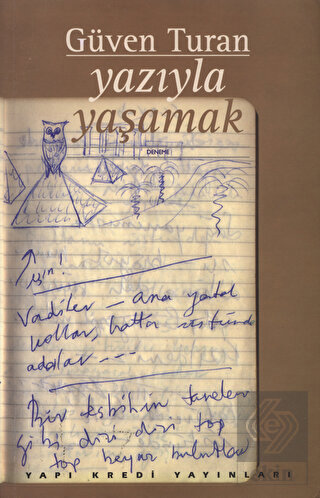 Güven Turan
yazıyla
yaşamak
DENEME
için!
Vadiler — ana yatak
kollar, hatta üstünde
adalar ---
Bir tesbihin taneleri
gibi dizi dizi top
top beyaz bulutlar
YAPI KREDİ YAYINLARI